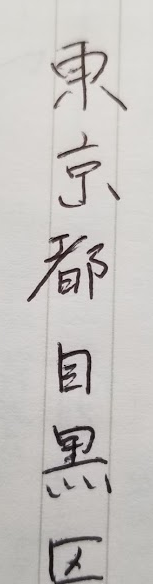 東京都目黒区